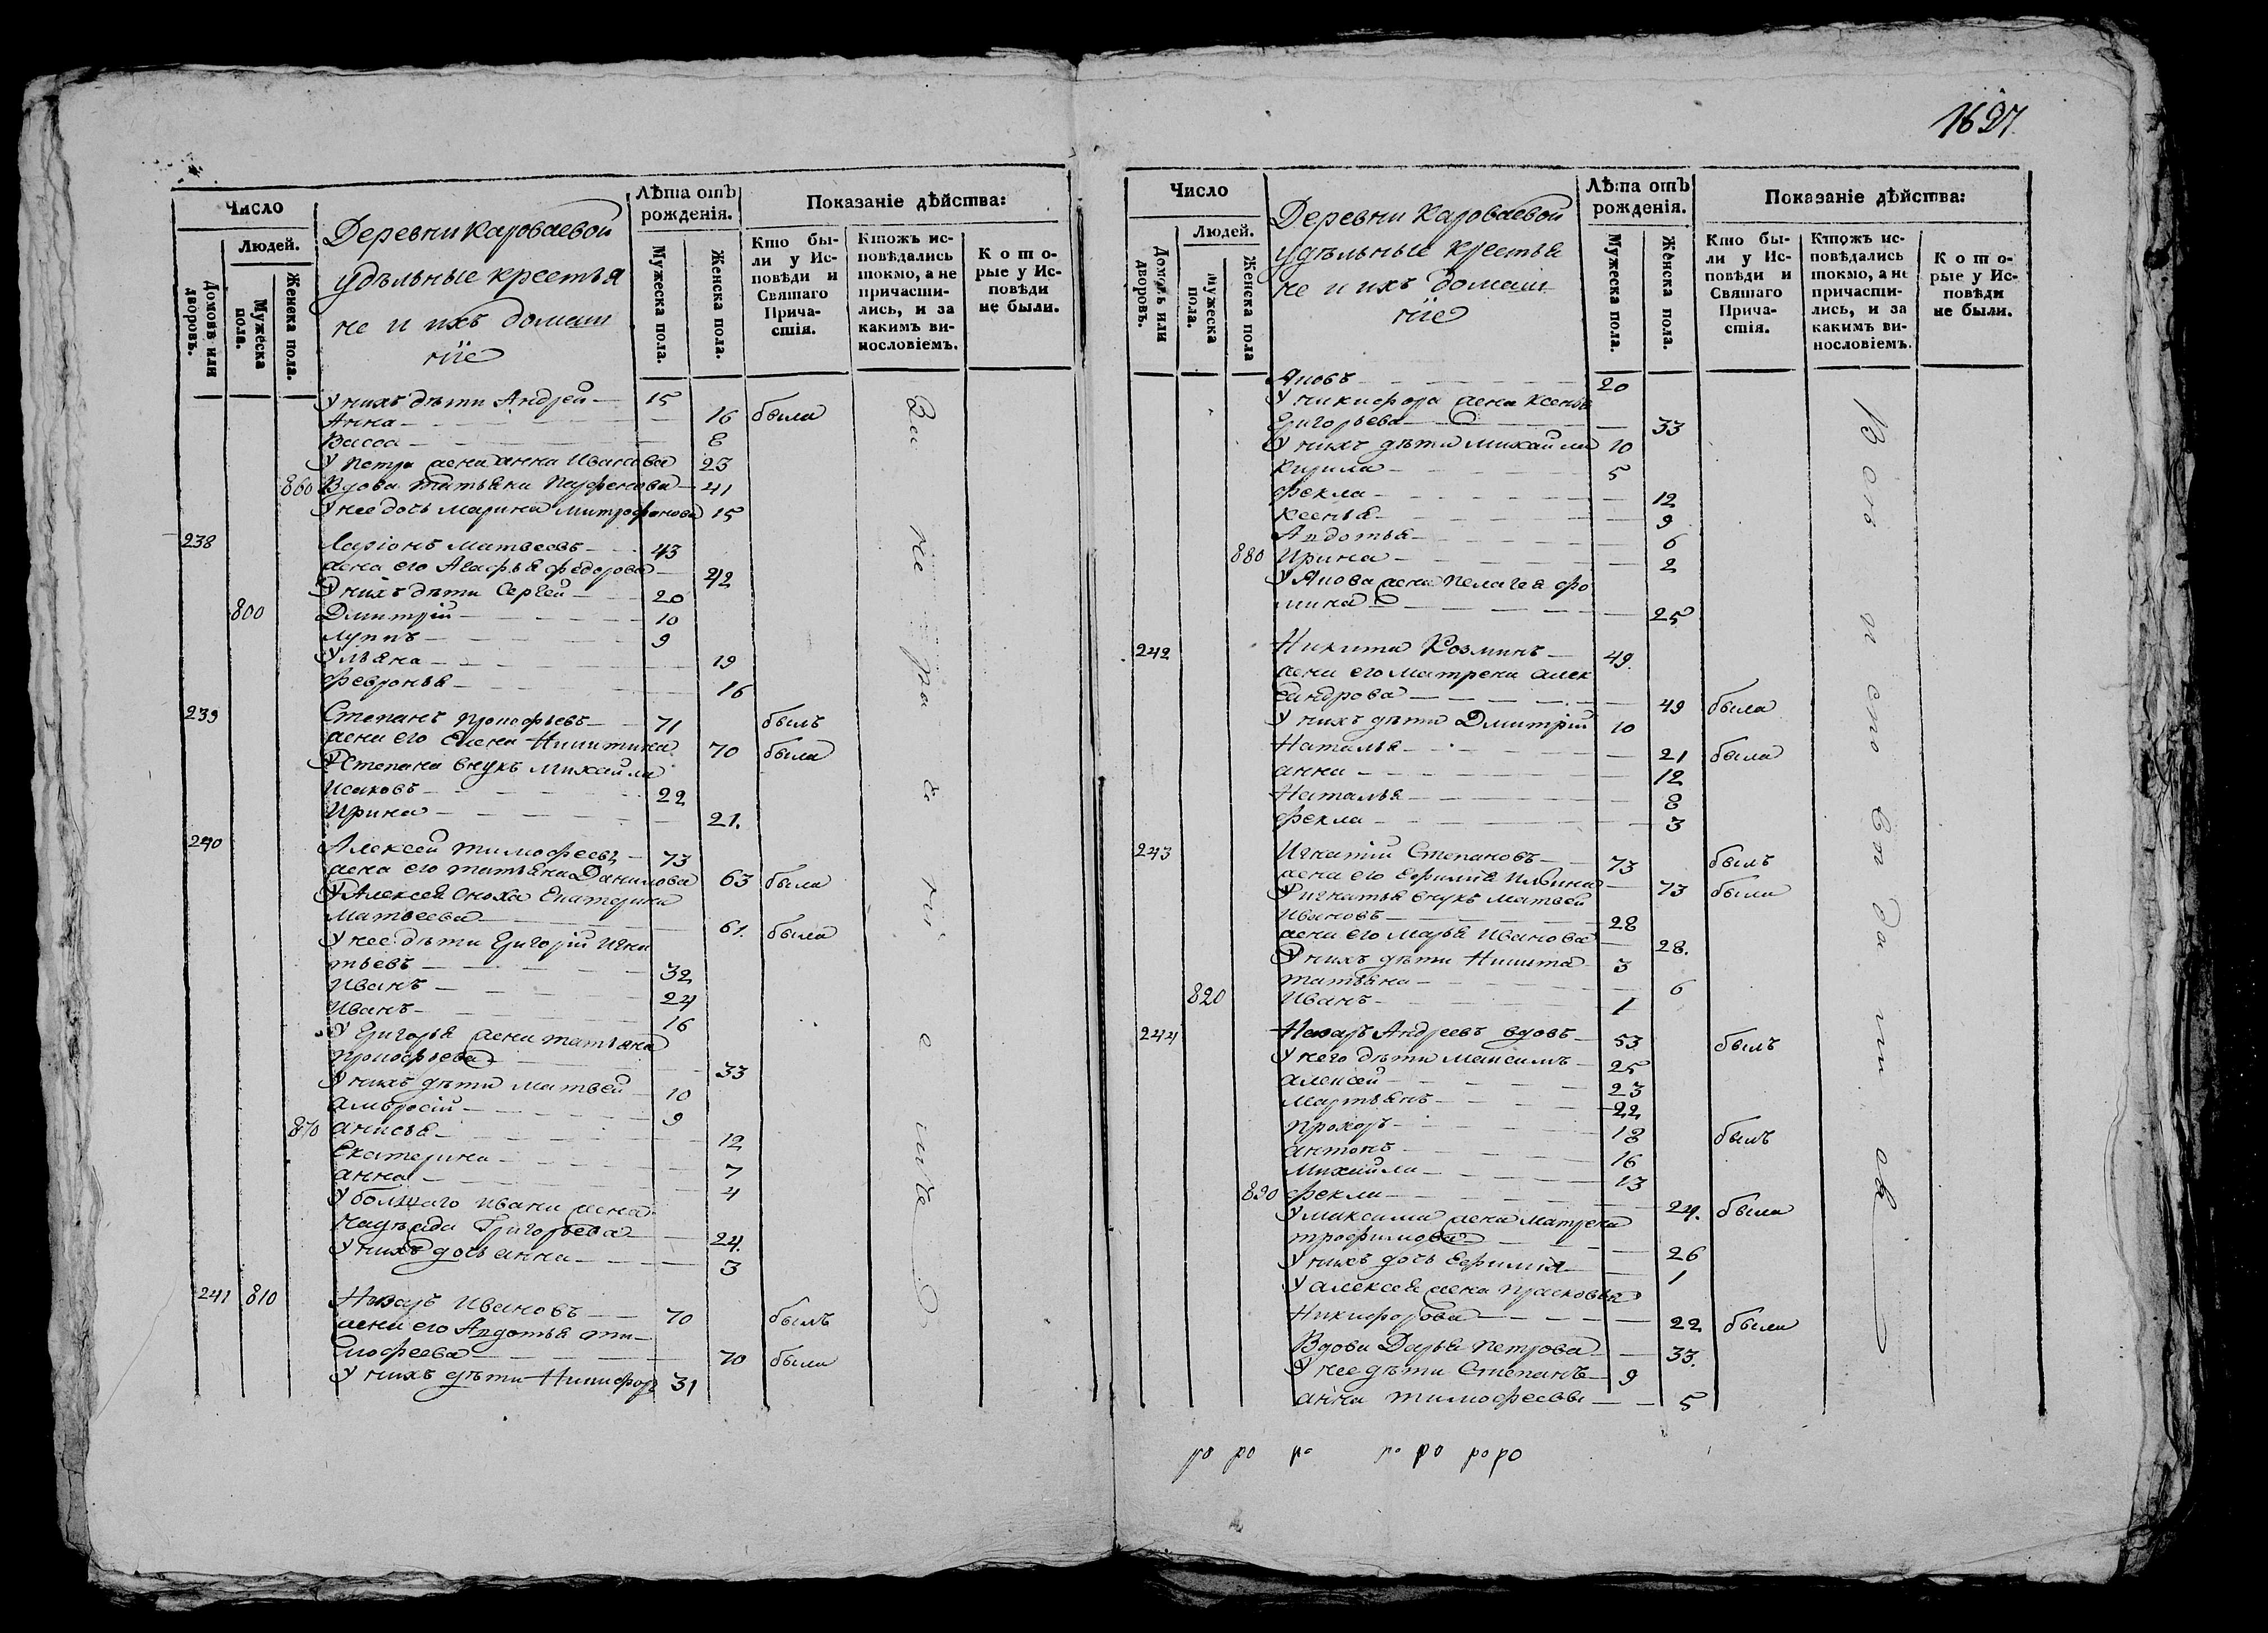 1627
Число
Людей.
Домовъ или дворовъ.
Мужеска пола.
Женска пола.
Деревни Караваевой
удѣльные крестья
не и ихъ домаш
ніе
Лѣта отъ рожденія.
Мужеска пола.
Женска пола.
Показаніе дѣйства:
Кто бы-
ли у Ис-
повѣди и
Святаго
Прича-
стія.
Ктожъ ис-
повѣдались
токмо, а не
причасти-
лись, и за
какимъ ви-
нословіемъ.
Кото-
рые у Ис-
повѣди
не были.
У нихъ дѣти Андрей 15
Анна 16 была
Васса 8
У Петра жена анна Иванова 23
860 Вдова татьяна Парфенова 41
У нее дочь марина митрофанова 15
238 Ларіонъ Матвеевъ 43
жена его Агафья федорова 42
У нихъ дѣти Сергей 20
800 Дмитрій 10
луппъ 9
Ульяна 19
февронья 16
239 Степанъ прокофьевъ 71 былъ
жена его Елена Никитина 70 была
У Степана внукъ михайла
Исаковъ 22
Ирина 21.
240 Алексей тимофеевъ 73
жена его татьяна Данилова 63 была
У Алексея сноха Екатерина
Матвеева 61. была
У нее дѣти Григорій Игна
тьевъ 32
Иванъ 24
Иванъ 16
У Григорья жена татьяна
прокофьева 33
У нихъ дѣти матвей 10
амвросій 9
870 анисья 12
Екатерина 7
анна 4
У большаго ивана жена
надежда Григорьева 24.
У нихъ дочь анна 3
241 810 Назаръ Ивановъ 70 былъ
жена его Авдотья ти-
мофеева 70 была
У нихъ дѣти Никифоръ 31
За не ра
Число
Людей.
Домовъ или дворовъ.
Мужеска пола.
Женска пола
Деревни Караваевой
удѣльные крестья
не и ихъ домаш
ніе
Лѣта отъ рожденія.
Мужеска пола.
Женска пола.
Показаніе дѣйства:
Кто бы-
ли у Ис-
повѣди и
Святаго
Прича-
стія.
Ктожъ ис-
повѣдались
токмо, а не
причасти-
лись, и за
какимъ ви-
нословіемъ.
Кото-
рые у Ис-
повѣди
не были.
Яковъ 20
У никифора жена Ксенья
Григорьева 33
У нихъ дѣти михайла 10
Кирила 5
фекла 12
ксенья 9
Авдотья 6
880 Ирина 2
У Якова жена Пелагея фо
мина 25
242 Никита Козминъ 49.
жена его матрена алек
сандрова 49 была
У нихъ дѣти Дмитрій 10
Наталья 21 была
анна 12
Наталья 8
фекла 3
243 Игнатій Степановъ 73 былъ
жена его Ефимия Ильина 73 была
У игнатья внукъ матвей
Ивановъ 28
жена его марья Иванова 28.
У нихъ дѣти Никита 3
татьяна 6
820 Иванъ 1
244 Назаръ Андреевъ вдовъ 53 былъ
У него дѣти максимъ 25
алексей 23
мартьянъ 22
прохоръ 18 былъ
антонъ 16
михайла 13
890 фекла 24. была
У максима жена матрена
трофимова 26
У нихъ дочь Ефимия 1
У алексея жена прасковья
Никифорова 22 была
Вдова Дарья петрова 33.
У нее дѣти Степанъ 9
анна тимофеевы 5
ро ро ро ро ро ро ро